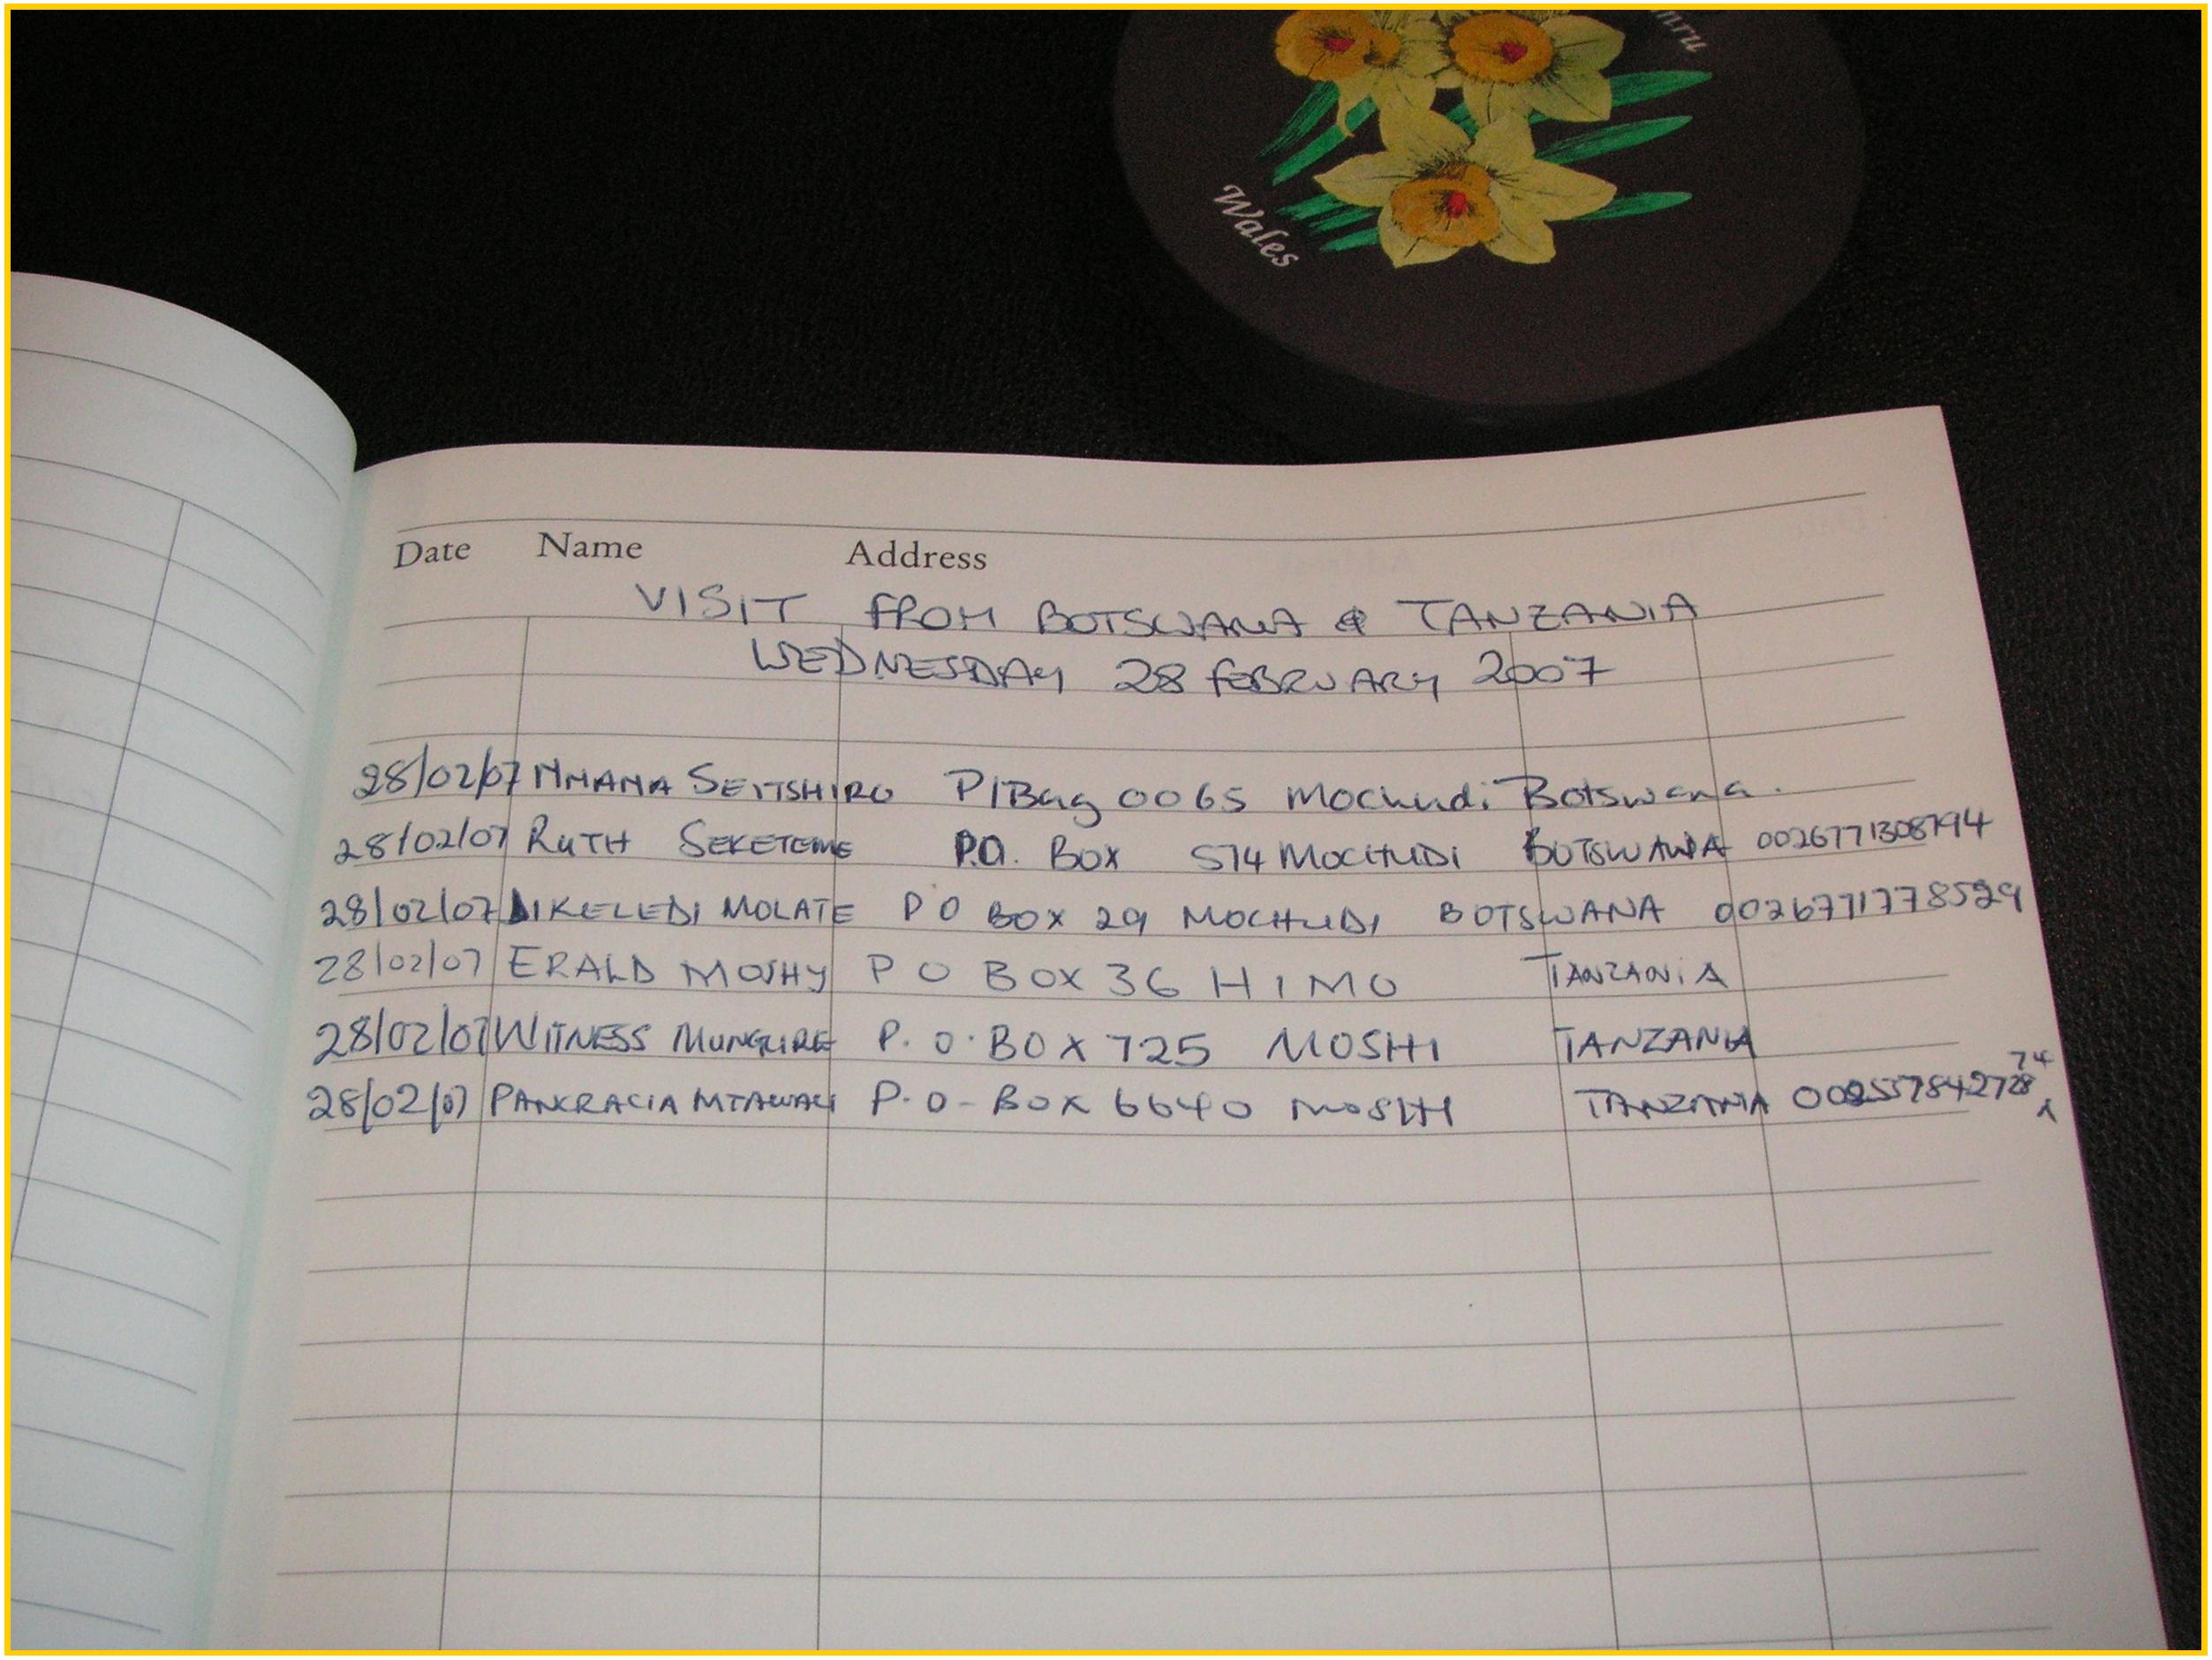 mru
Wales
Date Name Address
VISIT FROM BOTSWANA & TANZANIA
WEDNESDAY 28 FEBRUARY 2007
28/02/07 MMAMA SEITSHIRO P/Bag 0065 Mochudi Botswana.
28/02/07 RUTH SEKETEME P.O. BOX 574 MOCHUDI BOTSWANA
28/02/07 DIKELEDI MOLATE P O BOX 29 MOCHUDI BOTSWANA 0026771778529
28/02/07 ERALD MOSHY P O BOX 36 HIMO TANZANIA
28/02/07 WITNESS MUNGURE P.O.BOX 725 MOSHI TANZANIA
28/02/07 PANCRACIA P.O-BOX 6640 MOSHI TANZANIA